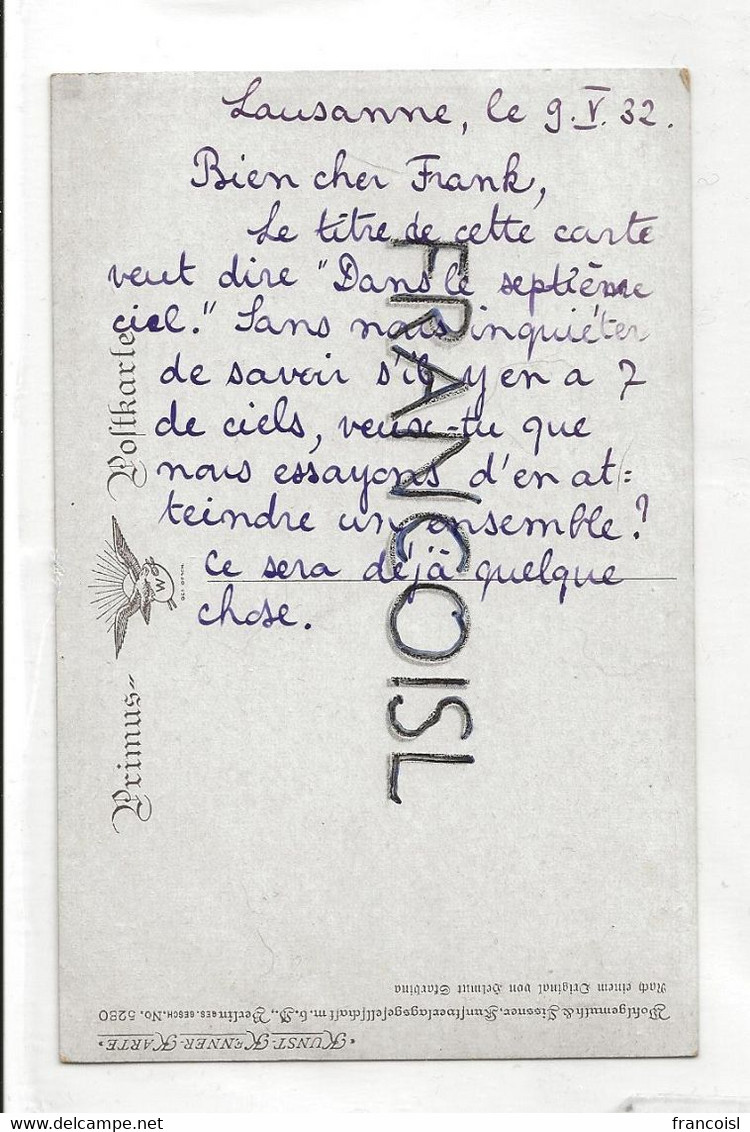 Lausanne, le 9.V.32.
Bien cher Frank,
Le titre de cette carte
veut dire "Dans le septième
ciel." Sans nous inquiéter
de savoir s'il y en a 7
de ciels, veux-tu que
nous essayons d'en at=
teindre un ensemble?
Ce sera déjà quelque
chose.
FRANCOISL
Primus-Postkarte
W
Nach einem Original von Helmut Skarbina
Wohlgemuth & Lissner, Kunstverlagsgesellschaft m.b.H., Berlin GES. GESCH. No. 5280
"KUNST-KENNER-KARTE"
delcampe.net
francoisl